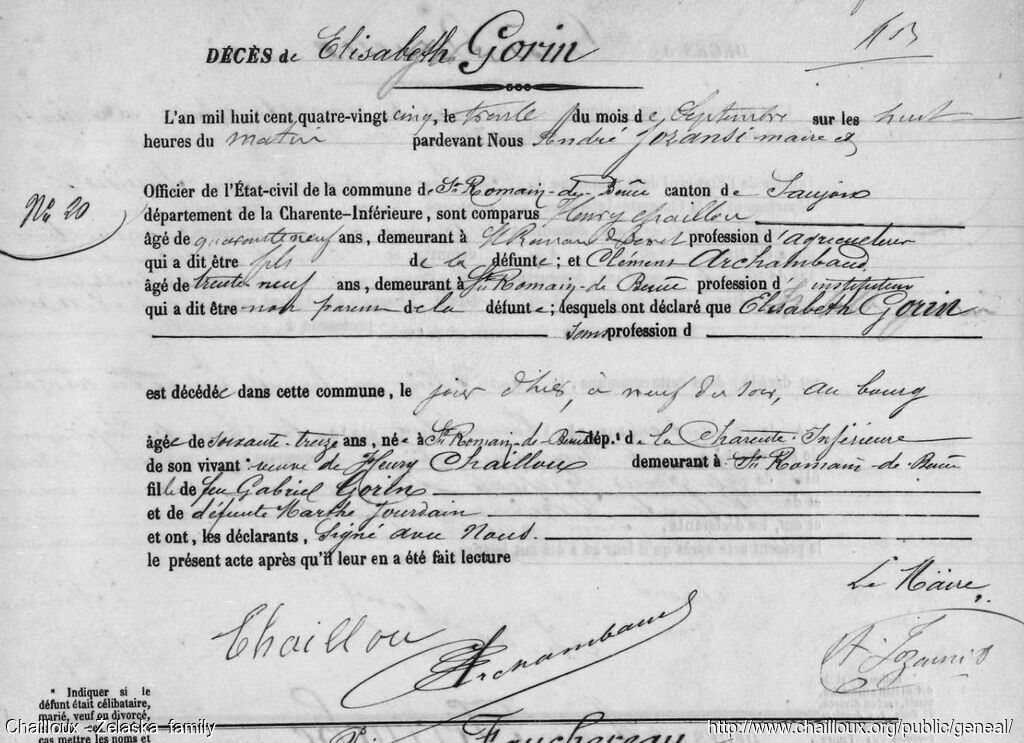 DÉCÈS de Elisabeth Gorin
L'an mil huit cent quatre-vingt cinq, le trente du mois de Septembre sur les huit
heures du matin pardevant Nous André maire et
Nº 20
Officier de l'État-civil de la commune de St Romain-de-Benêt canton de Saujon
département de la Charente-Inférieure, sont comparus Henry Chaillou
âgé de quarante neuf ans, demeurant à St Romain de Benet profession d'agriculteur
qui a dit être fils de la défunte; et Clément Archambaud,
âgé de trente-neuf ans, demeurant à St Romain-de Benêt profession d'instituteur
qui a dit être non parent de la défunte; desquels ont déclaré que Elisabeth Gorin
sans profession d
est décédée dans cette commune, le jour d'hier, à neuf du soir, au bourg
âgée de soixante-treize ans, née à St Romain-de-Benêt dép.t de la Charente-Inférieure
de son vivant: veuve de Henry Chaillou demeurant à St Romain-de-Benêt
fille de feu Gabriel Gorin
et de défunte Marthe Jourdain
et ont, les déclarants, signé avec Nous.
le présent acte après qu'il leur en a été fait lecture
Le Maire,
Chaillou
Archambaud
* Indiquer si le
défunt était célibataire,
marié, veuf ou divorcé,
cas mettre les noms et
Chailloux - Zelaska family
http://www.chailloux.org/public/geneal/